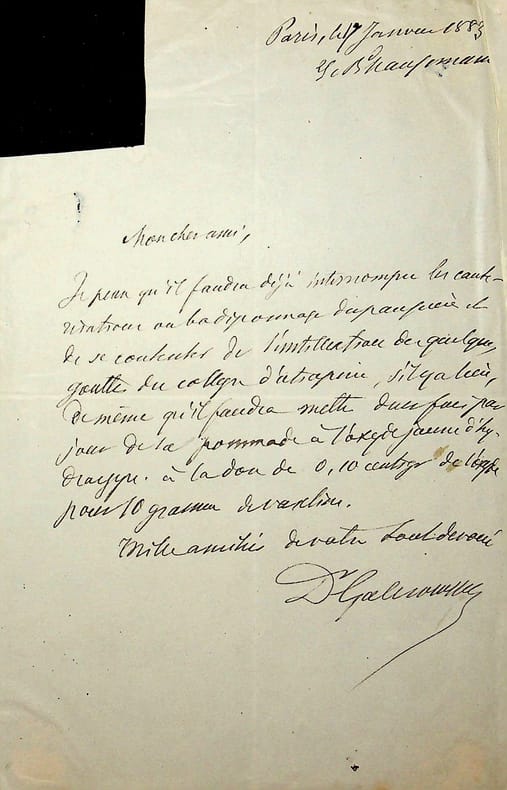 Paris, le 17 Janvier 1883
Bd Haussmann
Mon cher ami,
Je pense qu'il faudra déjà interrompre les cauté-
risations ou badigeonnage des paupières et
de se contenter de l'instillation de quelques
gouttes du collyre d'atropine, s'il y a lieu,
De même qu'il faudra mettre deux fois par
jour de la pommade à l'oxyde jaune d'hy-
drargyre. à la dose de 0,10 centigr de l'oxyde
pour 10 grammes de vaseline.
Mille amitiés de votre tout dévoué
Dr Galezowski